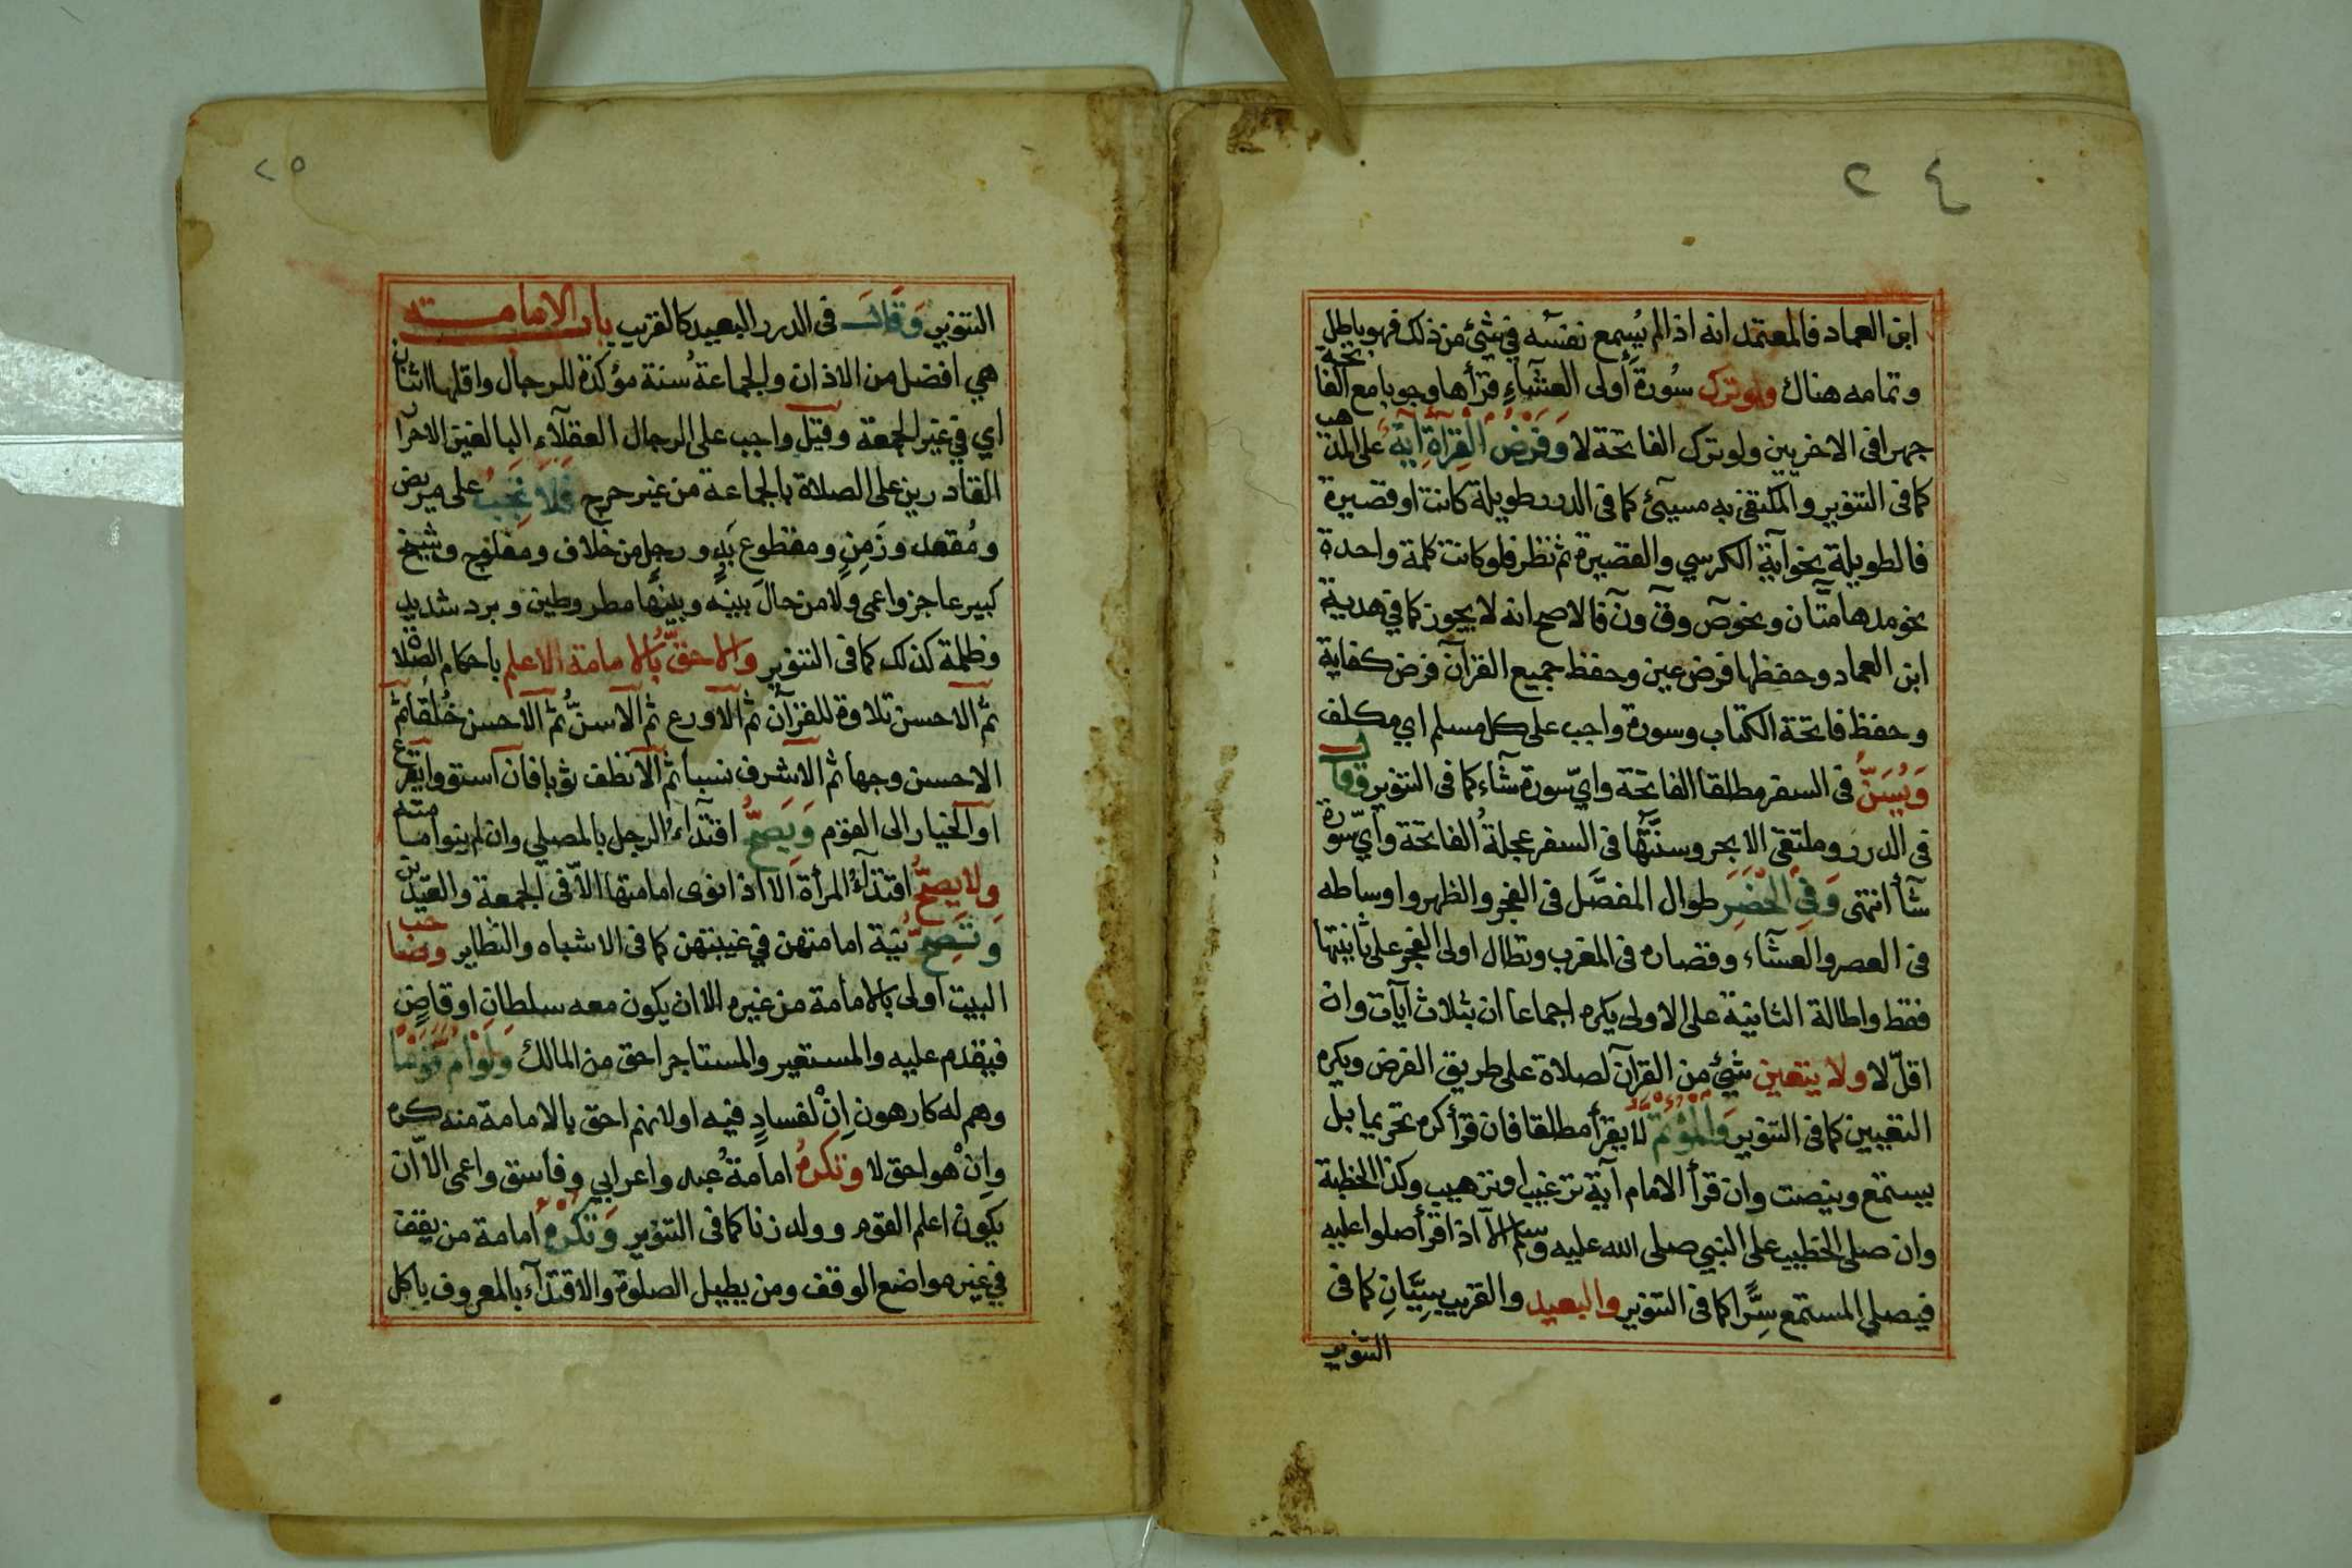 ٢٤
ابن العماد فالمعتمد انه اذا لم يُسمع نفسَه في شئ من ذلك فهو باطل
وتمامه هناك ولو ترك سُورةَ أولى العشآءِ قرأها وجوبا مع الفاتحة
جهرا فى الاخريين ولو ترك الفاتحة لا وَفَرْضُ الْقِرَآءَةِ آيَةٌ على المذهب
كما فى التنوير والمكتفى به مسيئ كما فى الدرر طويلة كانت او قصيرة
فالطويلة نحو آية الكرسي والقصيرة ثم نظر فلو كانت كلمة واحدة
نحو مدهامّتان ونحو صٓ وقٓ ونٓ فالاصح انه لا يجوز كما في هدية
ابن العماد وحفظها فرض عين وحفظ جميع القرآن فرض كفاية
وحفظ فاتحة الكتاب وسورة واجب على كل مسلم اي مكلف
وَيُسَنُّ فى السفر مطلقا الفاتحة وايّ سورة شآء كما فى التنوير وقال
فى الدرر وملتقى الابحر وسنتُّها فى السفر عجلةُ الفاتحة وأيّ سورة
شآأ انتهى وَفِي الْحَضَرِ طوال المفصَّل فى الفجر والظهر واوساطه
فى العصر والعشآء وقصاره فى المغرب وتطال اولى الفجر على ثانيتها
فقط واطالة الثانية على الاولى يكره اجماعا ان بثلاث آيات وان
اقلّ لا ولا يتعين شئ من القرآن لصلاة على طريق الفرض ويكره
التعيين كما فى التنوير وَالْمُؤْتَمُّ لا يقرأ مطلقا فان قرأ كره تحريما بل
يستمع وينصت وان قرأ الامام آية ترغيب او ترهيب وكذا الخطبة
وان صلى الخطيب على النبي صلى الله عليه وسلم الّا اذا قرأ صلوا عليه
فيصلي المستمع سِرًّا كما فى التنوير والبعيد والقريب سِيَّانِ كما فى
التنوير
٢٥
التنوير وَقَالَ فى الدرر البعيد كالقريب باب الامامة
هي افضل من الاذان والجماعة سُنة مؤكدة للرجال واقلها اثنان
اي في غير الجمعة وقيل واجب على الرجال العقلآء البالغين الاحرآ
القادرين على الصلاة بالجماعة من غير حرج فَلَا تَجِبُ على مريض
ومُقعد وزَمِنٍ ومقطوع يَدٍ ورجلٍ من خلاف ومفلوج وشيخ
كبير عاجز واعمى ولا من حالَ بينه وبينها مطر وطين وبرد شديد
وظلمة كذلك كما فى التنوير والاحقُّ بالامامة الاعلم باحكام الصلاة
ثم الاحسن تلاوة للقرآن ثم الاورع ثم الاسنّ ثم الاحسن خُلُقا ثم
الاحسن وجها ثم الاشرف نسبا ثم الانظف ثوبا فان استووا يقرع
او الخيار الى القوم وَيَصِحُّ اقتدآءُ الرجل بالمصلي وان لم ينو امامته
ولا يصحُّ اقتدآءُ المرأة الا اذا نوى امامتها الاّ فى الجمعة والعيدين
وَتَصِحُّ نية امامتهن في غيبتهن كما فى الاشباه والنظاير وصاحب
البيت اولى بالامامة من غيره الا ان يكون معه سلطان او قاضٍ
فيقدم عليه والمستعير والمستاجر احق من المالك وَلَوْ أَمَّ قَوْمًا
وهم له كارهون اِنْ لفسادٍ فيه او لانهم احق بالامامة منه كره
وإِنْ هو احق لا وتكره امامةُ عبد واعرابي وفاسق واعمى الاّ ان
يكون اعلم القوم وولد زنا كما فى التنوير وَتُكْرَهُ امامة من يقف
في غير مواضع الوقف ومن يطيل الصلوة والاقتدآء بالمعروف باكل